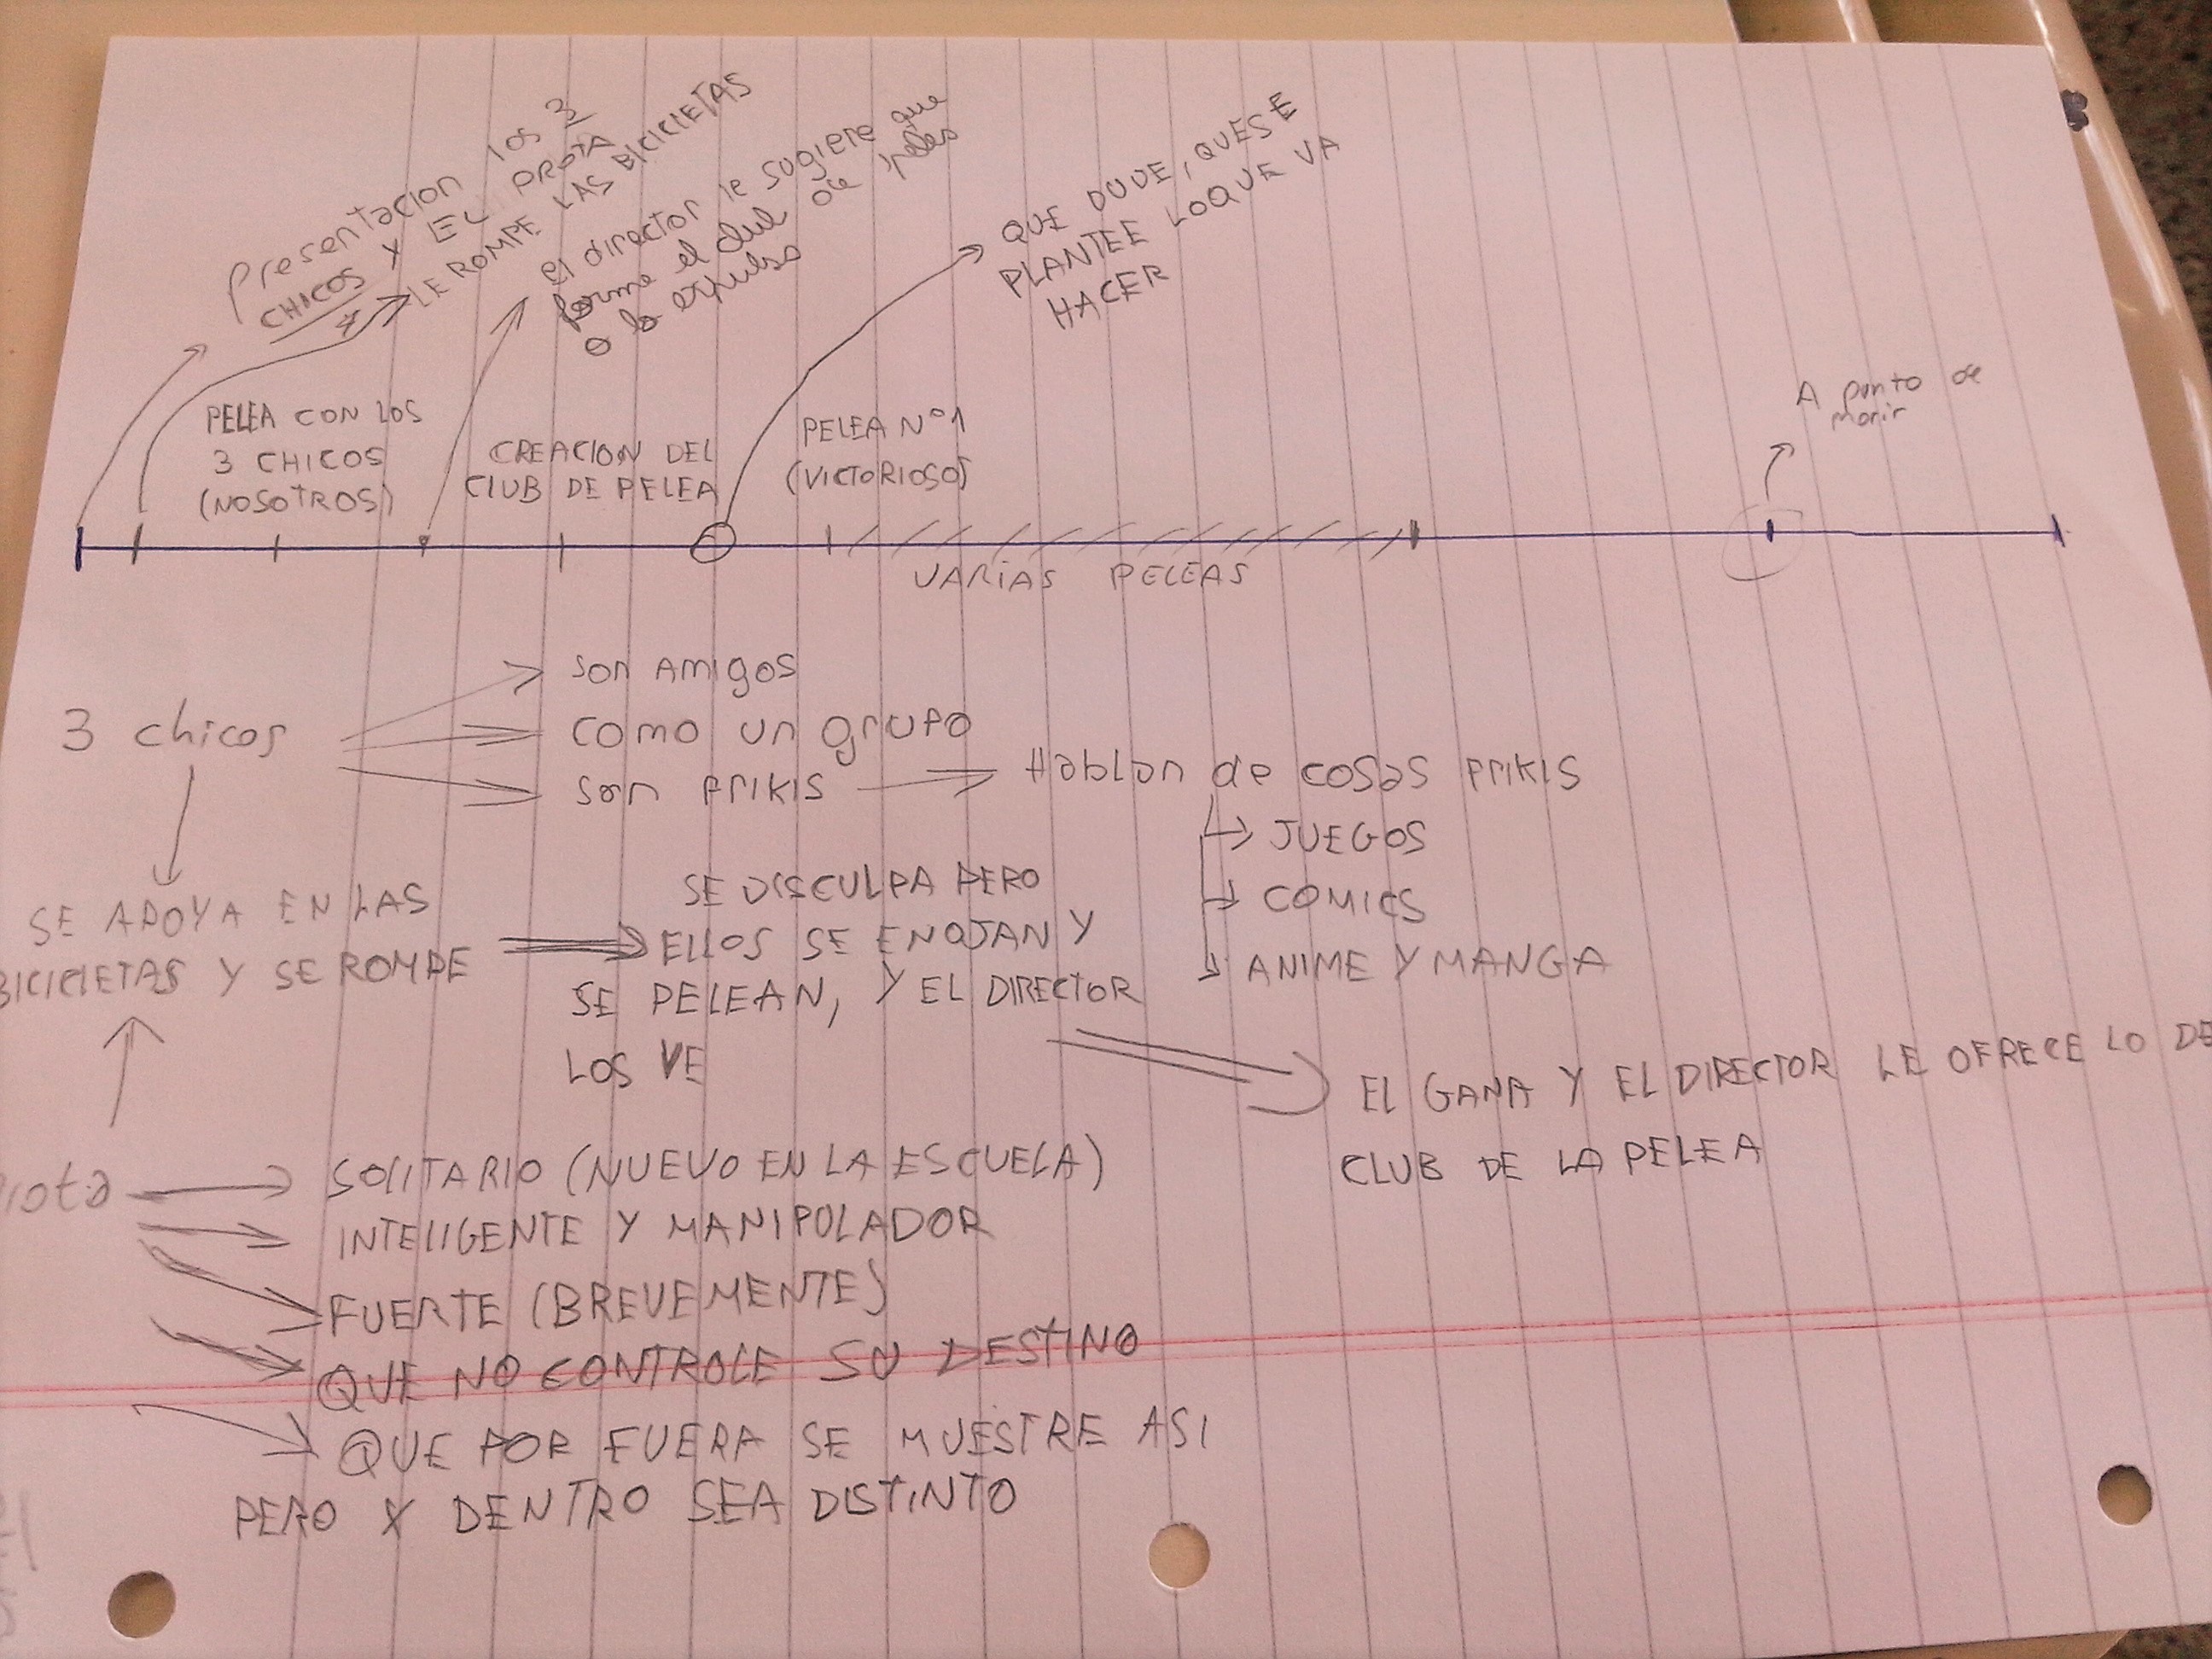 Presentacion los 3
CHICOS Y EL PROTA
LE ROMPE LAS BICICLETAS
el director le sugiere que
forme el club de peleas
o lo expulsa
QUE DUDE, QUE SE
PLANTEE LO QUE VA
HACER
PELEA CON LOS
3 CHICOS
(NOSOTROS)
CREACION DEL
CLUB DE PELEA
PELEA Nº1
(VICTORIOSO)
A punto de
morir
VARIAS PELEAS
3 chicos
son amigos
como un grupo
son frikis
Hablan de cosas frikis
JUEGOS
COMICS
ANIME Y MANGA
SE APOYA EN LAS
BICICLETAS Y SE ROMPE
SE DISCULPA PERO
ELLOS SE ENOJAN Y
SE PELEAN, Y EL DIRECTOR
LOS VE
EL GANA Y EL DIRECTOR LE OFRECE LO DE
CLUB DE LA PELEA
Prota
SOLITARIO (NUEVO EN LA ESCUELA)
INTELIGENTE Y MANIPOLADOR
FUERTE (BREVEMENTE)
QUE NO CONTROLE SU DESTINO
QUE POR FUERA SE MUESTRE ASI
PERO X DENTRO SEA DISTINTO